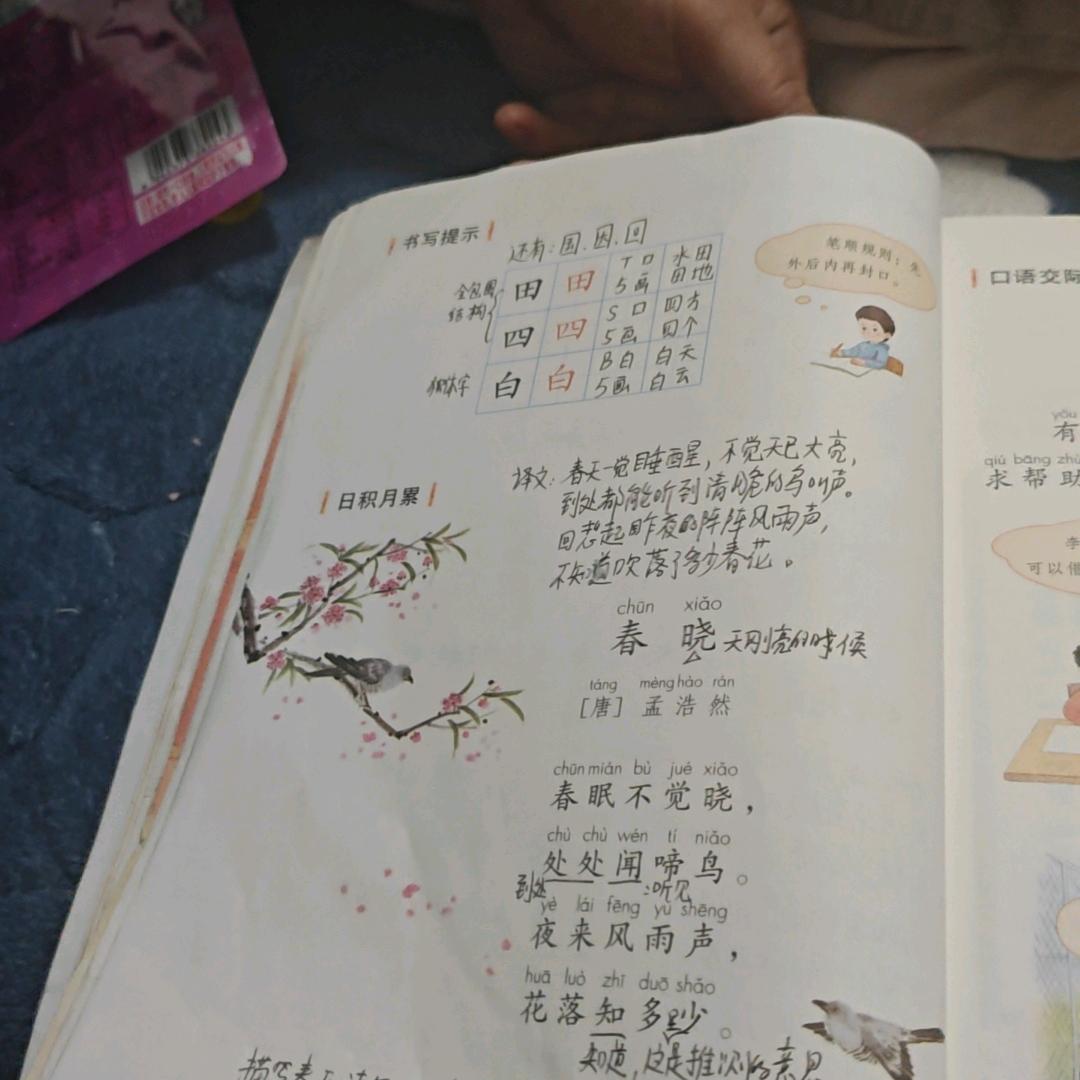 书写提示
还有：国、因、回
笔顺规则：先
外后内再封口。
全包围
结构
田 田 T 口 5画 水田 田地
四 四 S 口 5画 四方 四个
独体字
白 白 B 白 5画 白天 白云
日积月累
译文：春天一觉睡醒，不觉天已大亮，
到处都能听到清脆的鸟叫声。
回想起昨夜的阵阵风雨声，
不知道吹落了多少春花。
chūn xiǎo
春 晓 天刚亮的时候
táng mèng hào rán
［唐］孟浩然
chūn mián bù jué xiǎo
春眠不觉晓，
chù chù wén tí niǎo
处处闻啼鸟。
到处 ：听见
yè lái fēng yǔ shēng
夜来风雨声，
huā luò zhī duō shǎo
花落知多少。
知道，这是推测的意思
口语交际
yǒu
有
qiú bāng zhù
求帮助
李
可以借